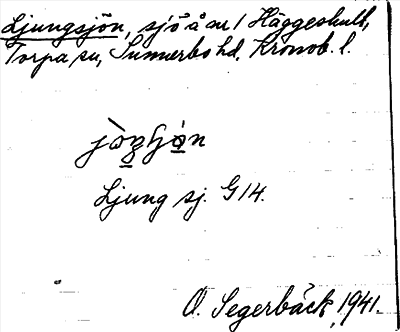 Ljungsjön, sjö å nr 1 Häggeshult,
Torpa sn, Sunnerbo hd, Kronob. l.
Ljung sj. G 14.
O. Segerbäck, 1941.